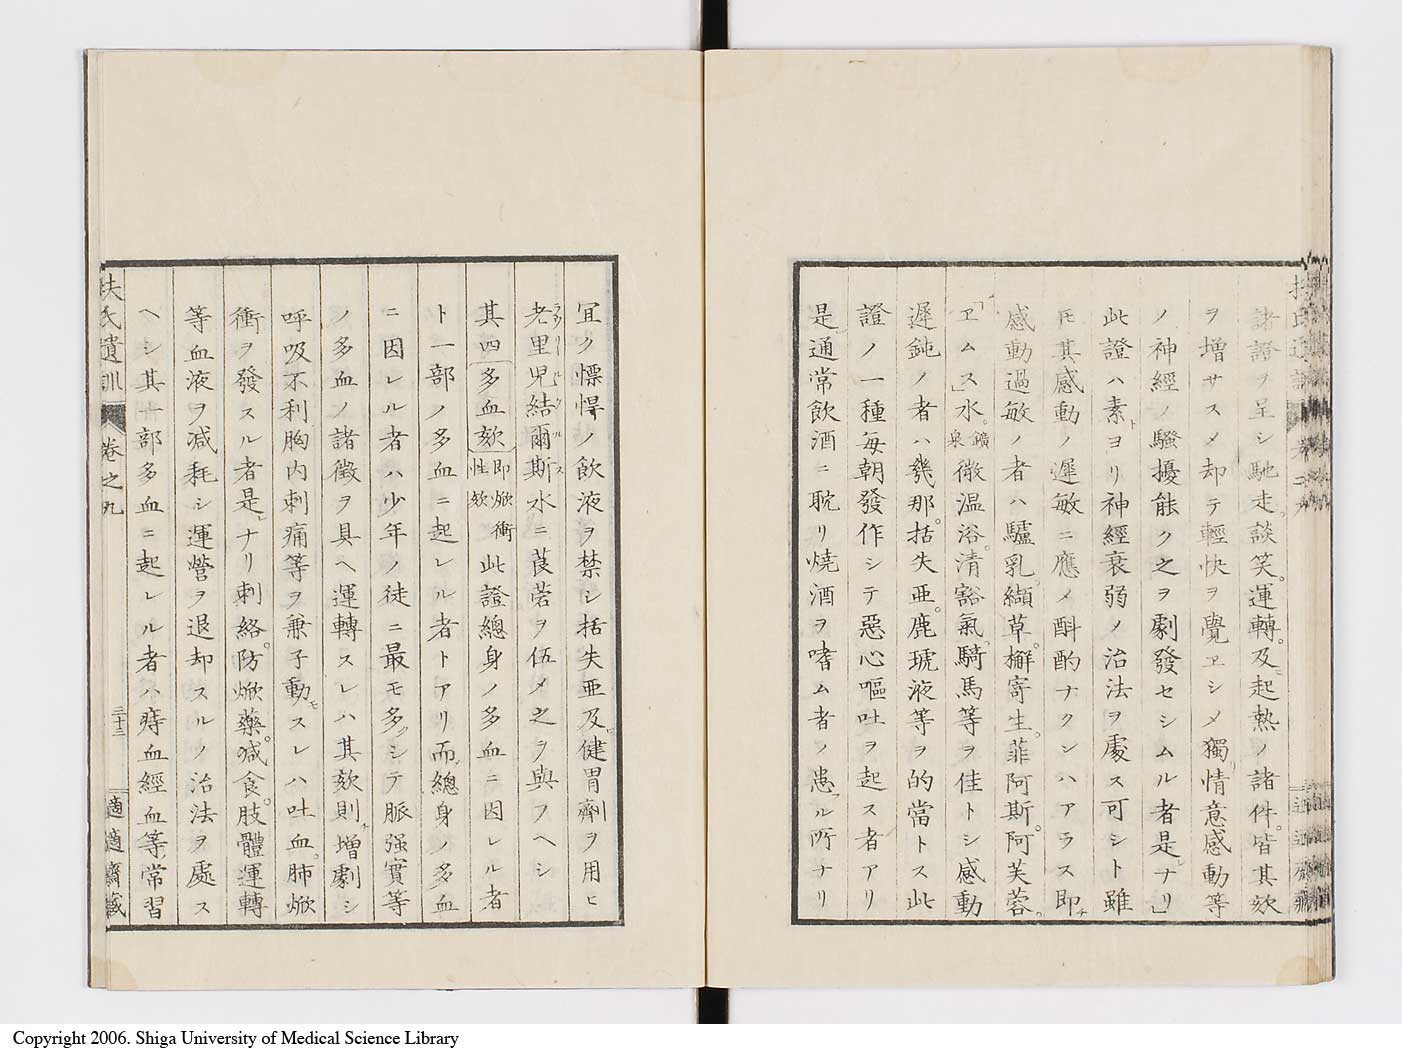 諸證ヲ呈シ馳走。談笑。運轉。及ヒ起熱ノ諸件。皆其欬
ヲ増サスメ却テ輕快ヲ覺ヱシメ獨リ情意感動等
ノ神經ノ騷擾能ク之ヲ劇發セシムル者是レナリ」
此證ハ素トヨリ神經衰弱ノ治法ヲ處ス可シト雖
モ其感動ノ遲敏ニ應メ斟酌ナクンハアラス即チ
感動過敏ノ者ハ驢乳。纈草。檞寄生。菲阿斯。阿芙蓉。
「ヱムス」水。鑛泉微温浴。清豁氣。騎馬等ヲ佳トシ感動
遲鈍ノ者ハ幾那。括失亜。鹿琥液等ヲ的當トス此
證ノ一種毎朝發作シテ惡心嘔吐ヲ起ス者アリ
是レ通常飲酒ニ耽リ焼酒ヲ嗜ム者ノ患ル所ナリ
冝ク慓悍ノ飲液ヲ禁シ括失亜及ヒ健胃劑ヲ用ヒ
老里児結爾斯水ニ莨菪ヲ伍メ之ヲ與フヘシ
其四多血欬即焮衝性欬此證總身ノ多血ニ因レル者
ト一部ノ多血ニ起レル者トアリ而メ總身ノ多血
ニ因レル者ハ少年ノ徒ニ最モ多クシテ脈强實等
ノ多血ノ諸徴ヲ具ヘ運轉スレハ其欬則チ増劇シ
呼吸不利胸内刺痛等ヲ兼子動モスレハ吐血。肺焮
衝ヲ發スル者是レナリ刺絡。防焮藥。減食。肢體運轉
等血液ヲ減耗シ運營ヲ退却スルノ治法ヲ處ス
ヘシ其一部多血ニ起レル者ハ痔血經血等常習
扶氏遺訓 卷之九 三十三 適適齋藏
Copyright 2006. Shiga University of Medical Science Library